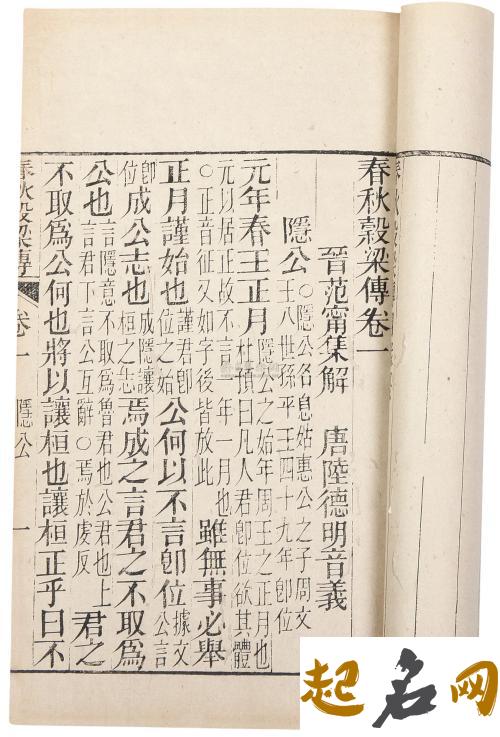 春秋穀梁傳卷一
晉范甯集解 唐陸德明音義
隱公 ○隱公名息姑惠公之子周文
王八世孫平王四十九年卽位
元年春王正月 隱公之始年周王之正月也
杜預曰凡人君卽位欲其體
元以居正故不言一年一月也
○正音征又如字後皆放此 雖無事必舉
正月謹始也 謹君卽位之始 公何以不言卽位 據文公言
卽位 成公志也 成隱讓桓之志 焉成之言君之不取爲
公也 言隱意不取爲魯君也公君也上
言君下言公互辭○焉於虔反 君之
不取爲公何也將以讓桓也讓桓正乎曰不
春秋穀梁傳 卷一 隱公 一
起名网